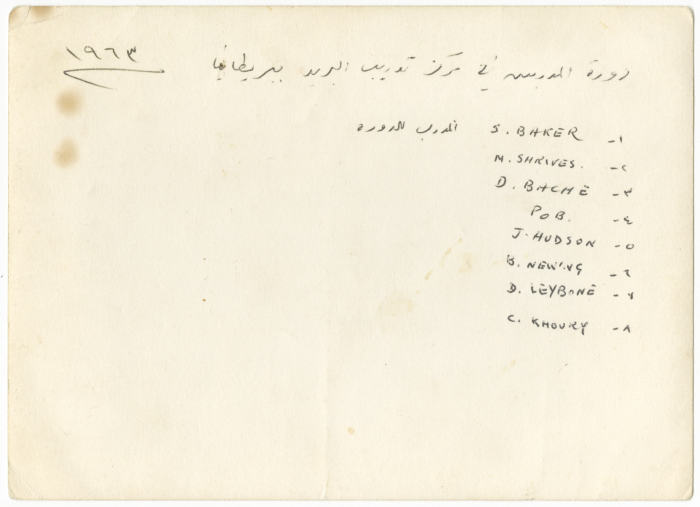 دورة المدربين في مركز تدريب البريد ببريطانيا ١٩٦٣
١- S. BAKER المدرب للدورة
٢- M. SHRIVES.
٣- D. BACHE
٤- POB.
٥- J. HUDSON
٦- B. NEWING
٧- D. LEYBONE
٨- C. KHOURY